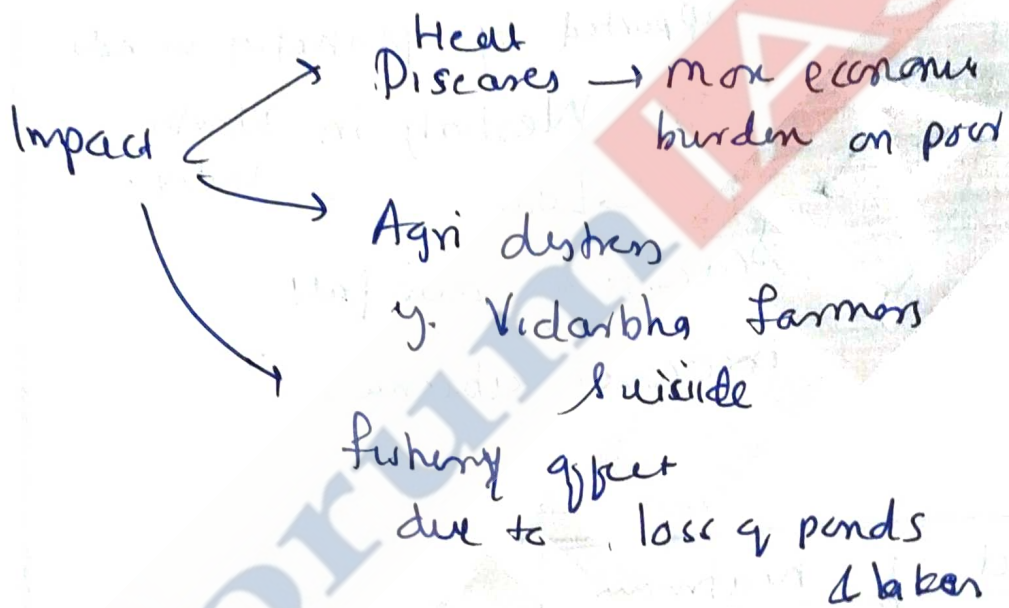 Heat
Diseases → more economic
Impact
burden on poor
Agri distress
eg. Vidarbha farmers
Suicide
fishery affect
due to loss of ponds
& lakes
orum IAS